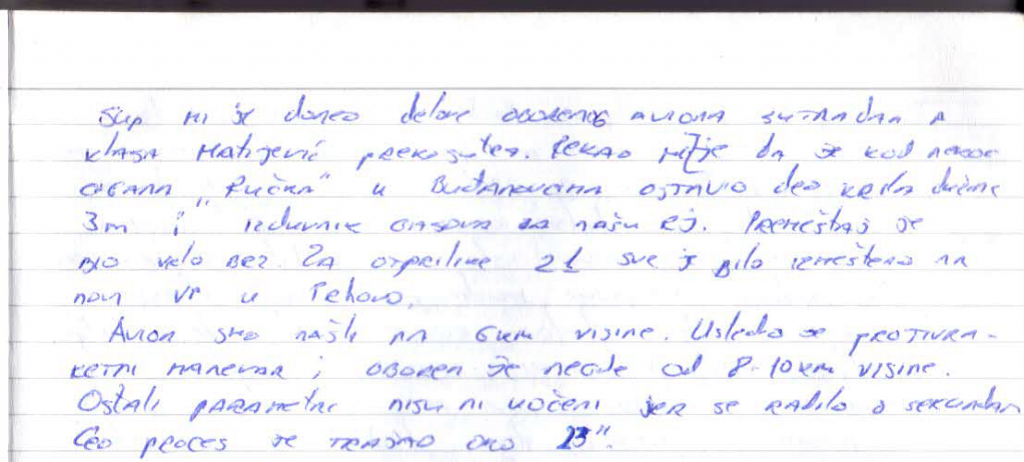 Sup mi je doneo delove oborenog aviona sutradan a
klasa Matijević prekosutra. Rekao mi je da je kod nekog
cigana „Ručka“ u Buđanovcima ostavio deo krila dužine
3m i izduvnik gasova za našu rj. Premeštaj je
bio vrlo brz. Za otprilike 2h sve je bilo izmešteno na
novi VP u Petrovo.
Avion smo našli na 6km visine. Usledio je protivra-
ketni manevar i oboren je negde od 8-10km visine.
Ostali parametri nisu ni uočeni jer se radilo o sekundam
Ceo proces je trajao oko 23".